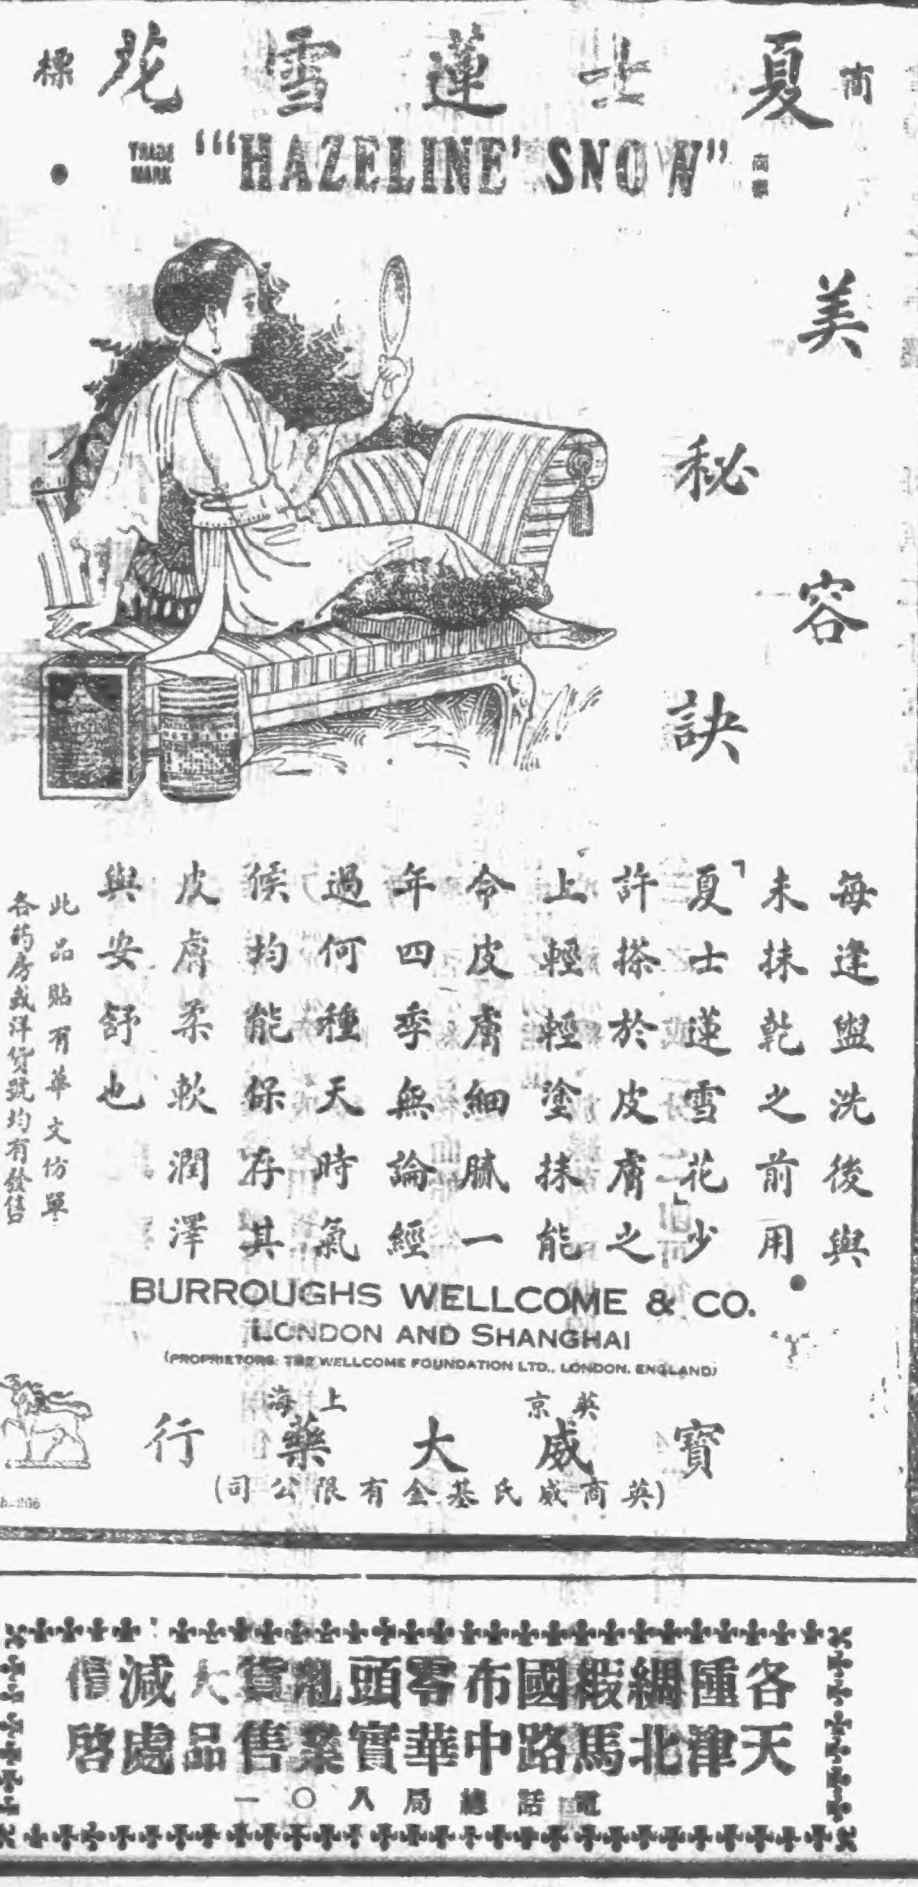 商標 夏士蓮雪花
TRADE MARK '"HAZELINE' SNOW" 商標
美容秘訣
每逢盥洗後與
未抹乾之前用
「夏士蓮雪花少
許搽於皮膚之
上輕輕塗抹能
令皮膚細膩一
年四季無論經
過何種天時氣
候均能保存其
皮膚柔軟潤澤
與安舒也
此品貼有華文仿單
各葯房或洋貨號均有發售
BURROUGHS WELLCOME & CO.
LONDON AND SHANGHAI
(PROPRIETORS: THE WELLCOME FOUNDATION LTD., LONDON, ENGLAND)
英京 上海
寶威大藥行
(英商威氏基金有限公司)
各種綢緞國布零頭亂貨大減價
天津北馬路中華實業售品處啓
電話總局八〇一